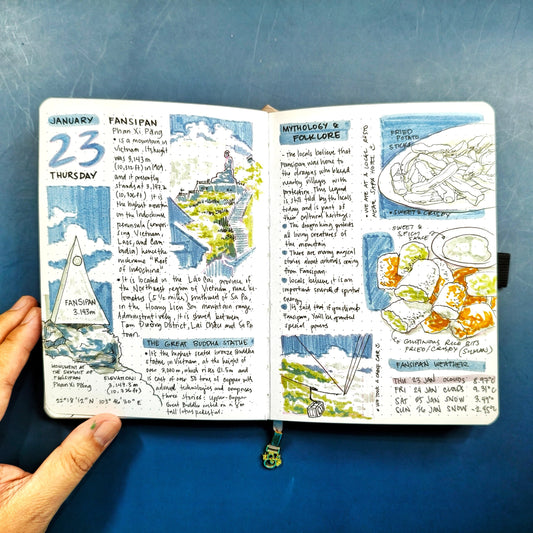 JANUARY
23
THURSDAY
FANSIPAN
Phan Xi Păng
• is a mountain in
Vietnam. Its height
was 3,143 m
(10,312 ft) in 1909.
and it presently
stands at 3,147.3 m
(10,326 ft) It is
the highest mountain
on the Indochinese
peninsula (compri-
sing Vietnam,
Laos, and Cam
bodia) hence the
nickname "Roof
of Indochina".
• It is located in the Lào Cai province of
the Northwest region of Vietnam, nine ki-
lometres (5½ miles) southwest of Sa Pa,
in the Hoang Lien Son mountain range.
Administratively, it is shared between
Tam Đường District, Lai Châu and Sa Pa
town.
FANSIPAN
3.143m
MONUMENT AT
THE SUMMIT OF
FANSIPAN
Phan Xi Păng
ELEVATION:
3,147.3 m
(10,326 ft)
22°18'12"N 103°46'30"E
THE GREAT BUDDHA STATUE
• It's the highest seated bronze Buddha
statue in Vietnam, at the height of
over 3,000 m, which rises 21.5m and
is cast of over 50 tons of copper with
advanced technologies and comprises
three stories: Upper-
Great Buddha seated on a
tall lotus pedestal.
MYTHOLOGY &
FOLKLORE
- The locals believe that
Fansipan was home to
the dragons who blessed
nearby villages with
protection. This legend
is still told by the locals
today and is part of
their cultural heritage.
The dragon king protects
all living creatures of
the mountain
There are many magical
stories about animals coming
from Fansipan.
Locals believe, it is an
important source of spiritual
energy
It's said that if you climb
Fansipan, You'll be granted
special powers
• WE ATE AT A LOCAL RESTO
NEAR SAPA HOTEL
FRIED
POTATO
STICKS
• SWEET & CRISPY
SWEET &
SPICY
SAUCE
GLUTINOUS RICE BITS
FRIED/CRISPY
CABLE CAR
FANSIPAN WEATHER
THU 23 JAN CLOUDS 8.97°C
FRI 24 JAN CLOUDS 9.31°C
SAT 25 JAN SNOW 3.49°C
SUN 26 JAN SNOW -2.95°C